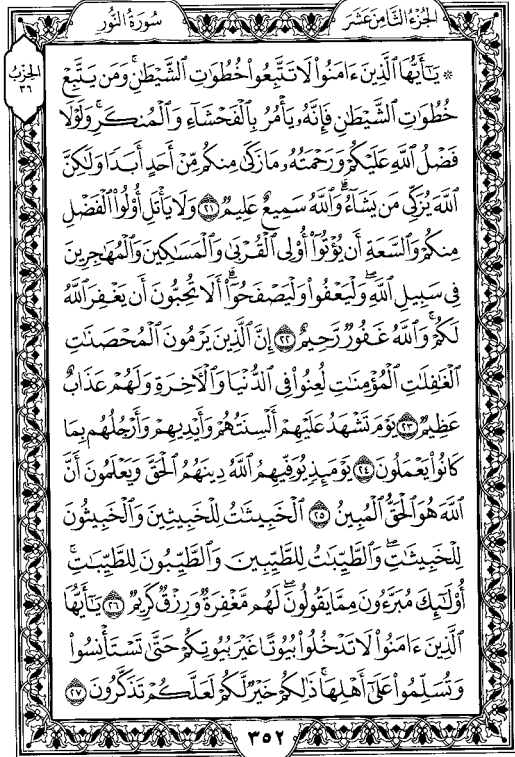 الجزء الثامن عشر
سورة النور
الحزب ٣٦
۞ يَٰٓأَيُّهَا ٱلَّذِينَ ءَامَنُوا۟ لَا تَتَّبِعُوا۟ خُطُوَٰتِ ٱلشَّيْطَٰنِ ۚ وَمَن يَتَّبِعْ
خُطُوَٰتِ ٱلشَّيْطَٰنِ فَإِنَّهُۥ يَأْمُرُ بِٱلْفَحْشَآءِ وَٱلْمُنكَرِ ۚ وَلَوْلَا
فَضْلُ ٱللَّهِ عَلَيْكُمْ وَرَحْمَتُهُۥ مَا زَكَىٰ مِنكُم مِّنْ أَحَدٍ أَبَدًا وَلَٰكِنَّ
ٱللَّهَ يُزَكِّى مَن يَشَآءُ ۗ وَٱللَّهُ سَمِيعٌ عَلِيمٌ ٢١ وَلَا يَأْتَلِ أُو۟لُوا۟ ٱلْفَضْلِ
مِنكُمْ وَٱلسَّعَةِ أَن يُؤْتُوٓا۟ أُو۟لِى ٱلْقُرْبَىٰ وَٱلْمَسَٰكِينَ وَٱلْمُهَٰجِرِينَ
فِى سَبِيلِ ٱللَّهِ ۖ وَلْيَعْفُوا۟ وَلْيَصْفَحُوٓا۟ ۗ أَلَا تُحِبُّونَ أَن يَغْفِرَ ٱللَّهُ
لَكُمْ ۗ وَٱللَّهُ غَفُورٌ رَّحِيمٌ ٢٢ إِنَّ ٱلَّذِينَ يَرْمُونَ ٱلْمُحْصَنَٰتِ
ٱلْغَٰفِلَٰتِ ٱلْمُؤْمِنَٰتِ لُعِنُوا۟ فِى ٱلدُّنْيَا وَٱلْءَاخِرَةِ وَلَهُمْ عَذَابٌ
عَظِيمٌ ٢٣ يَوْمَ تَشْهَدُ عَلَيْهِمْ أَلْسِنَتُهُمْ وَأَيْدِيهِمْ وَأَرْجُلُهُم بِمَا
كَانُوا۟ يَعْمَلُونَ ٢٤ يَوْمَئِذٍ يُوَفِّيهِمُ ٱللَّهُ دِينَهُمُ ٱلْحَقَّ وَيَعْلَمُونَ أَنَّ
ٱللَّهَ هُوَ ٱلْحَقُّ ٱلْمُبِينُ ٢٥ ٱلْخَبِيثَٰتُ لِلْخَبِيثِينَ وَٱلْخَبِيثُونَ
لِلْخَبِيثَٰتِ ۖ وَٱلطَّيِّبَٰتُ لِلطَّيِّبِينَ وَٱلطَّيِّبُونَ لِلطَّيِّبَٰتِ ۚ
أُو۟لَٰٓئِكَ مُبَرَّءُونَ مِمَّا يَقُولُونَ ۖ لَهُم مَّغْفِرَةٌ وَرِزْقٌ كَرِيمٌ ٢٦ يَٰٓأَيُّهَا
ٱلَّذِينَ ءَامَنُوا۟ لَا تَدْخُلُوا۟ بُيُوتًا غَيْرَ بُيُوتِكُمْ حَتَّىٰ تَسْتَأْنِسُوا۟
وَتُسَلِّمُوا۟ عَلَىٰٓ أَهْلِهَا ۚ ذَٰلِكُمْ خَيْرٌ لَّكُمْ لَعَلَّكُمْ تَذَكَّرُونَ ٢٧
٣٥٢